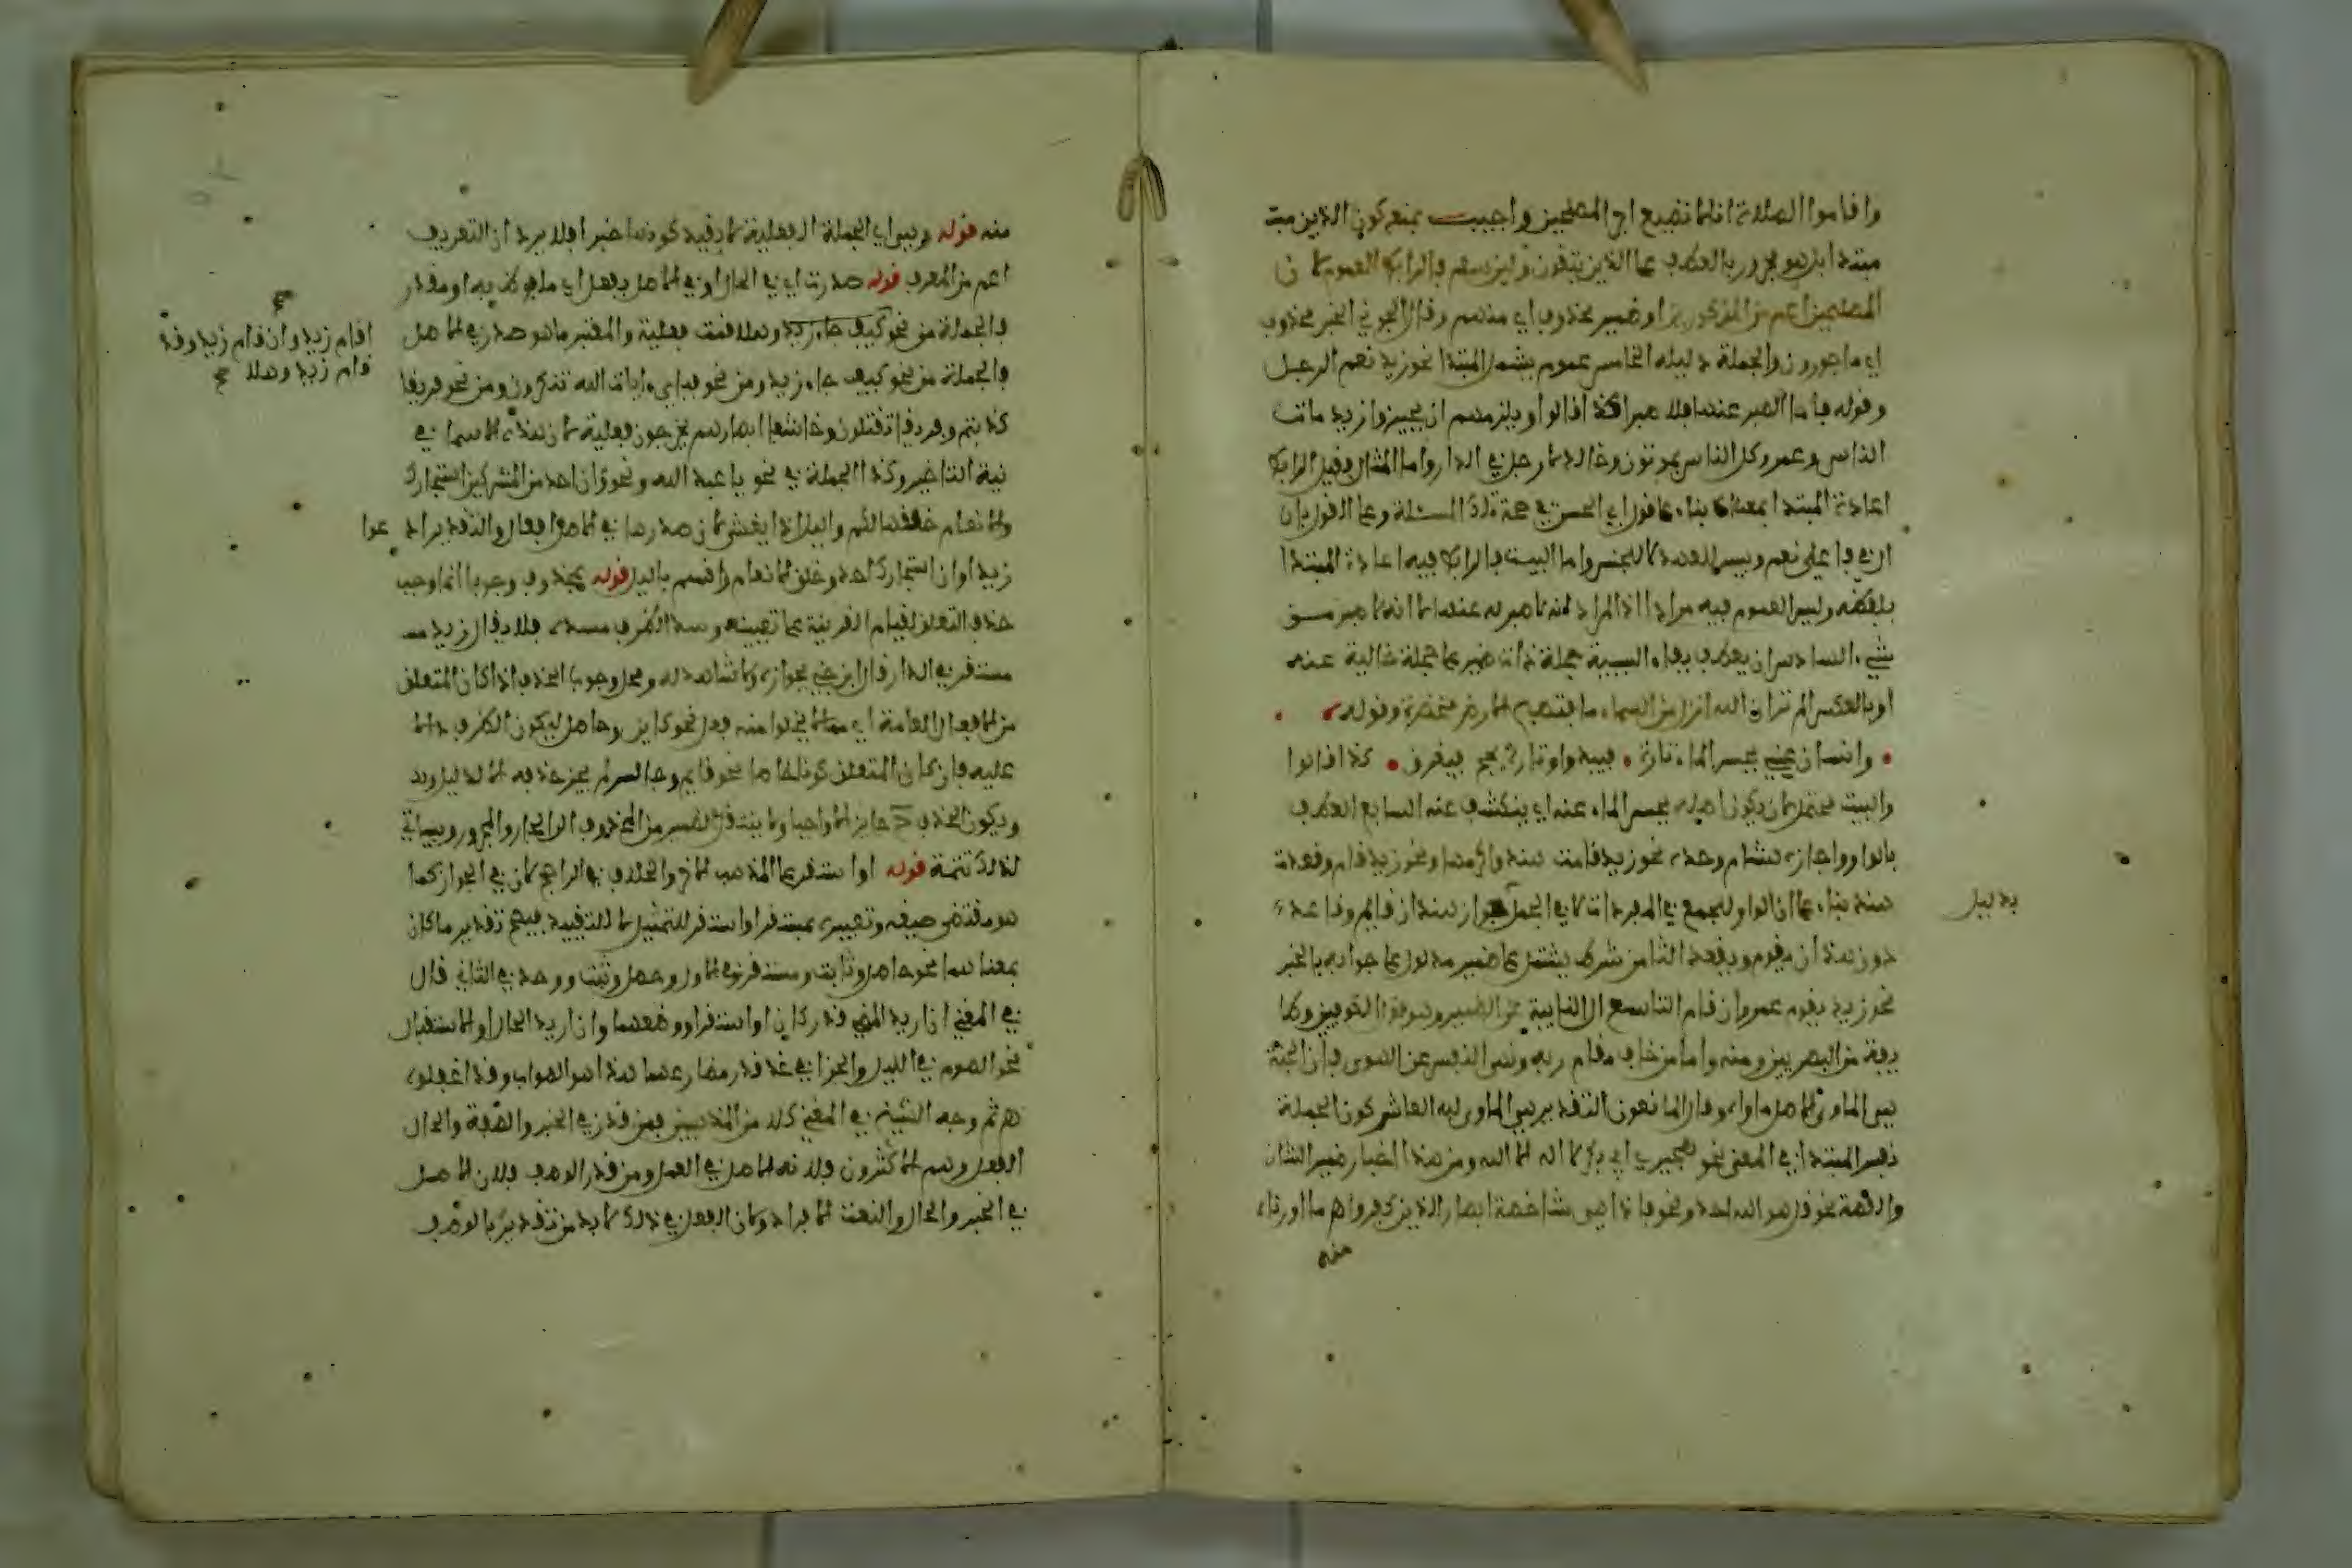 واقاموا الصلاة انا لا نضيع اجر المصلحين واجيب بمنع كون الذين
مبتدا بل هو مجرور بالعطف على الذين يتقون ولين سلم فالرابط العموم لان
المصلحين اعم من المذكورين او ضمير محذوف اي منهم وقال الحوفي الخبر محذوف
اي ماجورون والجملة دليله الخامس عموم يشمل المبتدا نحو زيد نعم الرجل
وقوله فاما الصبر عنها فلا صبرا كذا قالوا ويلزمهم ان يجيزوا زيد مات
الناس وعمرو كل الناس يموتون وخالد لا رجل في الدار واما المثال فقيل الرابط
اعادة المبتدا بمعناه بناء على قول ابي الحسن في صحة تلك المسئلة وعلى القول بان
ال في فاعلي نعم وبيس للعهد لا للجنس واما البيت فالرابط فيه اعادة المبتدا
بلفظه وليس العموم فيه مرادا اذ المراد انه لا صبر له عنها لا انه لا صبر له عن
شيء السادس ان يعطف بفاء السببية جملة ذات ضمير على جملة خالية عنه
او بالعكس الم تر ان الله انزل من السماء ماء فتصبح الارض مخضرة وقوله
وانسان عيني يحسر الماء تارة فيبدوا وتارات يجم فيغرق كذا قالوا
والبيت محتمل لان يكون اصله يحسر الماء عنه اي ينكشف عنه السابع العطف
بالواو واجازه هشام وحده نحو زيد قامت هند واكرمها ونحو زيد قام وقعدت
هند بناء على ان الواو للجمع في المفردات لا في الجمل جواز هذان قايم وقاعد
بدليل
دون هذان يقوم ويقعد الثامن شرط يشتمل على ضمير مدلول على جوابه بالخبر
نحو زيد يقوم عمرو ان قام التاسع ال النايبة عن الضمير وهو قول الكوفيين وطا
يفة من البصريين ومنه واما من خاف مقام ربه ونهى النفس عن الهوى فان الجنة
هي الماوى الاصل ماواه وقال المانعون التقدير هي الماوى له العاشر كون الجملة
نفس المبتدا في المعنى نحو هجيري ابي بكر لا اله الا الله ومن هذا اخبار ضمير الشان
والقصة نحو قل هو الله احد ونحو فاذا هي شاخصة ابصار الذين كفروا اهـ ما اوردناه
منه
منه قوله وهي اي الجملة الفعلية لا بقيد كونها خبرا فلا يرد ان التعريف
اعم من المعرف قوله صدرت اي في الحال او في الاصل بفعل اي ملفوظ به او مقدر
فالجملة من نحو كيف جاء زيد وهلا قمت فعلية والمعتبر ما هو صدر في الاصل
صح
اقام زيد وان قام زيد وقد
قام زيد وهلا صح
فالجملة من نحو كيف جاء زيد ومن نحو فاي ءايات الله تنكرون ومن نحو فريقا
كذبتم وفريقا تقتلون وخاشعا ابصارهم يخرجون فعلية لان هذه الاسما في
نية التاخير وكذا الجملة في نحو يا عبد الله ونحو وان احد من المشركين استجارك
والانعام خلقها لكم والليل اذا يغشى لان صدرها في الاصل افعال والتقدير ادعوا
زيدا وان استجارك احد وخلق الانعام واقسم بالليل قوله بمحذوف وجوبا انما وجب
حذف التعلق لقيام القرينة على تعيينه وسد الظرف مسده فلا يقال زيد
مستقر في الدار قال ابن جني بجوازه ولا شاهد له ومحل وجوب الحذف اذا كان المتعلق
من الافعال العامة اي مما لا يخلوا منه فعل نحو كاين وحاصل ليكون الظرف دالا
عليه فان كان المتعلق كونا خاصا نحو قايم وجالس لم يجز حذفه الا لدليل
ويكون الحذف ح جايز الا واجبا ولا ينتقل الضمير من المحذوف الى الجار والمجرور وسياتي
لذلك تتمة قوله او استقر على المذهب الاخر والخلاف في الراجح لا في الجواز كما
هو مقتضى صيغه وتعبيره بمستقر او استقر للتمثيل لا للتقييد فيصح تقدير ما كان
بمعناهما نحو حاصل وثابت ومستقر في الاول وحصل وثبت ووجد في الثاني قال
في المغني ان اريد المضي قدر كان او استقر او وصفهما وان اريد الحال او الاستقبال
نحو الصوم في الليل والجزا في غد قدر مضارعهما هذا هو الصواب وقد اغفلوه
اهـ ثم وجه الشيخ في المغني كلا من المذهبين فمن قدر في الخبر والصفة والحال
الفعل وهم الاكثرون فلانه الاصل في العمل ومن قدر الوصف فلان الاصل
في الخبر والحال والنعت الافراد ولان الفعل في ذلك لا بد من تقديره بالوصف